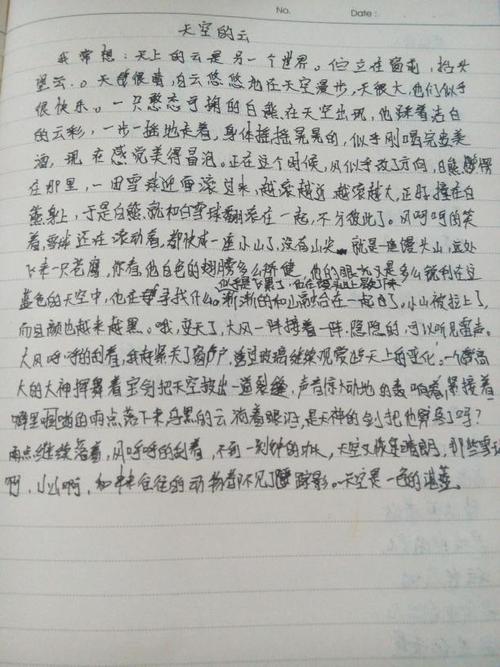 No.
Date:
天空的云
我常想:天上的云是另一个世界。伫立在窗前,抬头
望云。天蓝很蓝,白云悠悠地在天空漫步,天很大,他们似乎
很快乐。一只憨态可掬的白熊在天空出现,他踩着洁白
的云彩,一步一摇地走着,身体摇摇晃晃的,似乎刚喝完美
酒,现在感觉美得冒泡。正在这个时候,风似乎改了方向,白熊愣
在那里,一团雪球迎面滚过来,越滚越近越滚越大,正好撞在白
熊身上,于是白熊就和白雪球翻滚在一起,不分彼此了。风呵呵的笑
着,雪球还在滚动着,都快成一座小山了,没有山尖就是馒头山,远处
飞来一只老鹰,你看,他白色的翅膀多么矫健,他的眼光是多么锐利在这
似乎是飞累了,他在馒头山上歇了下来
蓝色的天空中,他在寻找什么。渐渐的和山融合在一起了。小山被拉上了,
而且颜色越来越黑。哦,变天了,大风一阵接着一阵,隐隐的,可以听见雷声。
大风呼呼的刮着,我赶紧关了窗户,透过玻璃继续观察这天上的变化。一个高
大的大神挥舞着宝剑把天空劈出一道裂缝,声音惊天动地的轰响着,紧接着
噼里啪啦的雨点落下来,乌黑的云淌着眼泪,是天神的剑把他弄哭了吗?
雨点继续落着,风呼呼的刮着,不到一刻钟的功夫,天空又恢复晴朗了,那些雪
啊,小山啊,和来来往往的动物都不见了踪影。天空是一色的湛蓝。